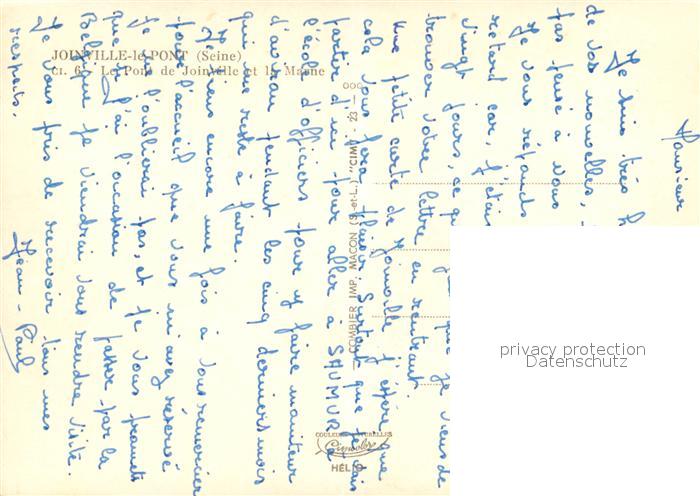 JOINVILLE-le-PONT (Seine)
CI. 6 - Le Pont de Joinville et la Marne
COMBIER IMP. MACON (S.-et-L.) "CIM"
COULEURS NATURELLES
Cimcolor
HÉLIO
Monsieur
Je suis très
de vos nouvelles,
pas pensé à vous
Je vous réponds
retard car, j'étais
vingt jours, ce que je viens de
trouver votre lettre en rentrant.
Une petite carte de Joinville j'espère que
cela vous fera plaisir. Surtout que je vais
partir d'un jour aller à SAUMUR à
l'école d'officiers pour y faire moniteur
d'avion pendant les cinq derniers mois
qui me reste à faire.
Je tiens encore une fois à vous remercier
pour l'accueil que vous m'avez réservé
Je l'oublierai pas, et je vous promets
que si j'ai l'occasion de passer par la
Belgique je viendrai vous rendre visite.
Je vous pris de recevoir tous mes
respects.
Jean-Paul
privacy protection
Datenschutz